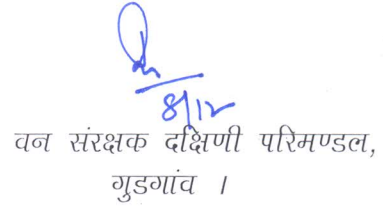 8/12
वन संरक्षक दक्षिणी परिमण्डल,
गुडगांव ।